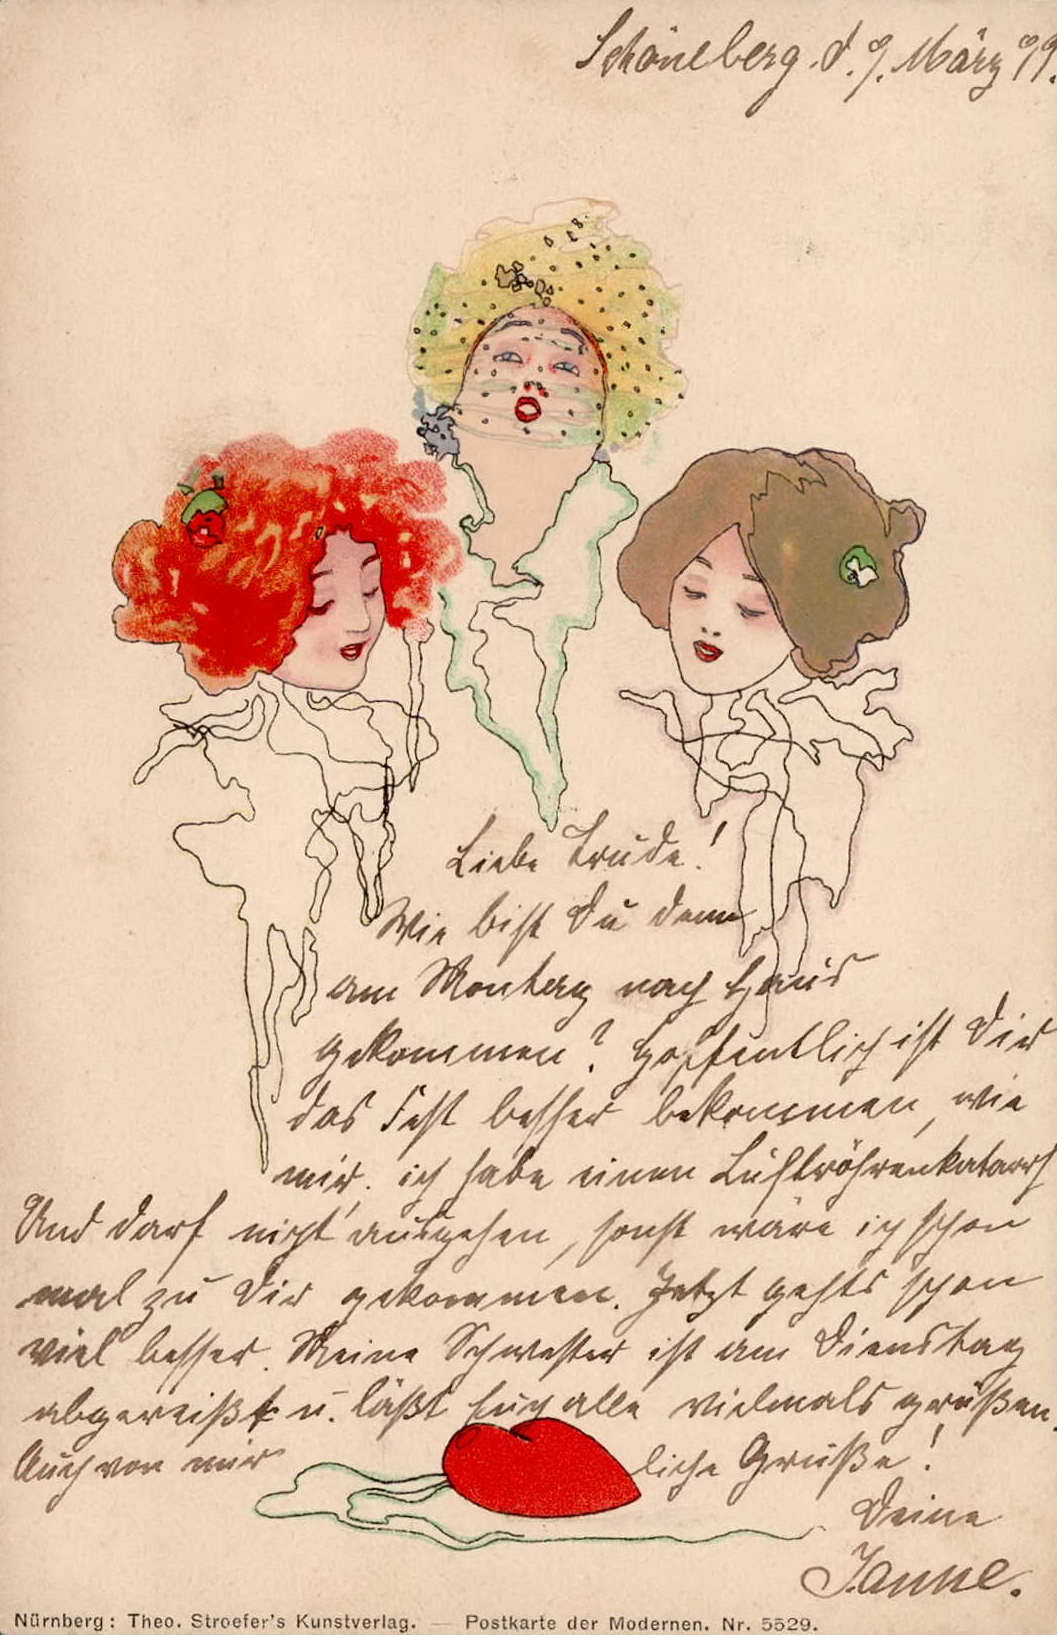 Schöneberg. d. 9. März 99.
Liebe Trude!
Wie bist Du denn
am Montag nach Haus
gekommen? Hoffentlich ist Dir
das Fest besser bekommen, wie
mir. ich habe einen Luftröhrenkatarrh
Und darf nicht ausgehen, sonst wäre ich schon
mal zu Dir gekommen. Jetzt gehts schon
viel besser. Meine Schwester ist am Dienstag
abgereißt u. läßt Euch alle vielmals grüßen.
Auch von mir liche Grüße!
Deine
Janne.
Nürnberg: Theo. Stroefer's Kunstverlag. — Postkarte der Modernen. Nr. 5529.